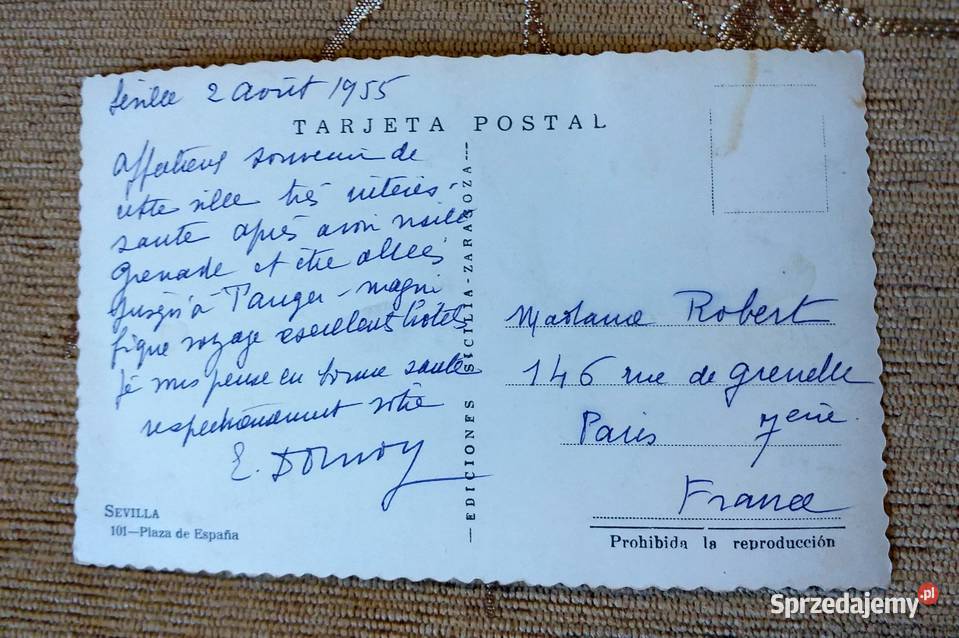 Séville 2 Août 1955
TARJETA POSTAL
Affectueux souvenir de
cette ville très intéres-
sante après avoir visité
Grenade et être allées
jusqu'à Tanger - magni
fique voyage excellents hôtels
Je vous pense en bonne santé
respectueusement vôtre
E. Dornoy
SEVILLA
101—Plaza de España
—EDICIONES SICILIA-ZARAGOZA—
Madame Robert
146 rue de Grenelle
Paris 7eme
France
Prohibida la reproducción
Sprzedajemy.pl